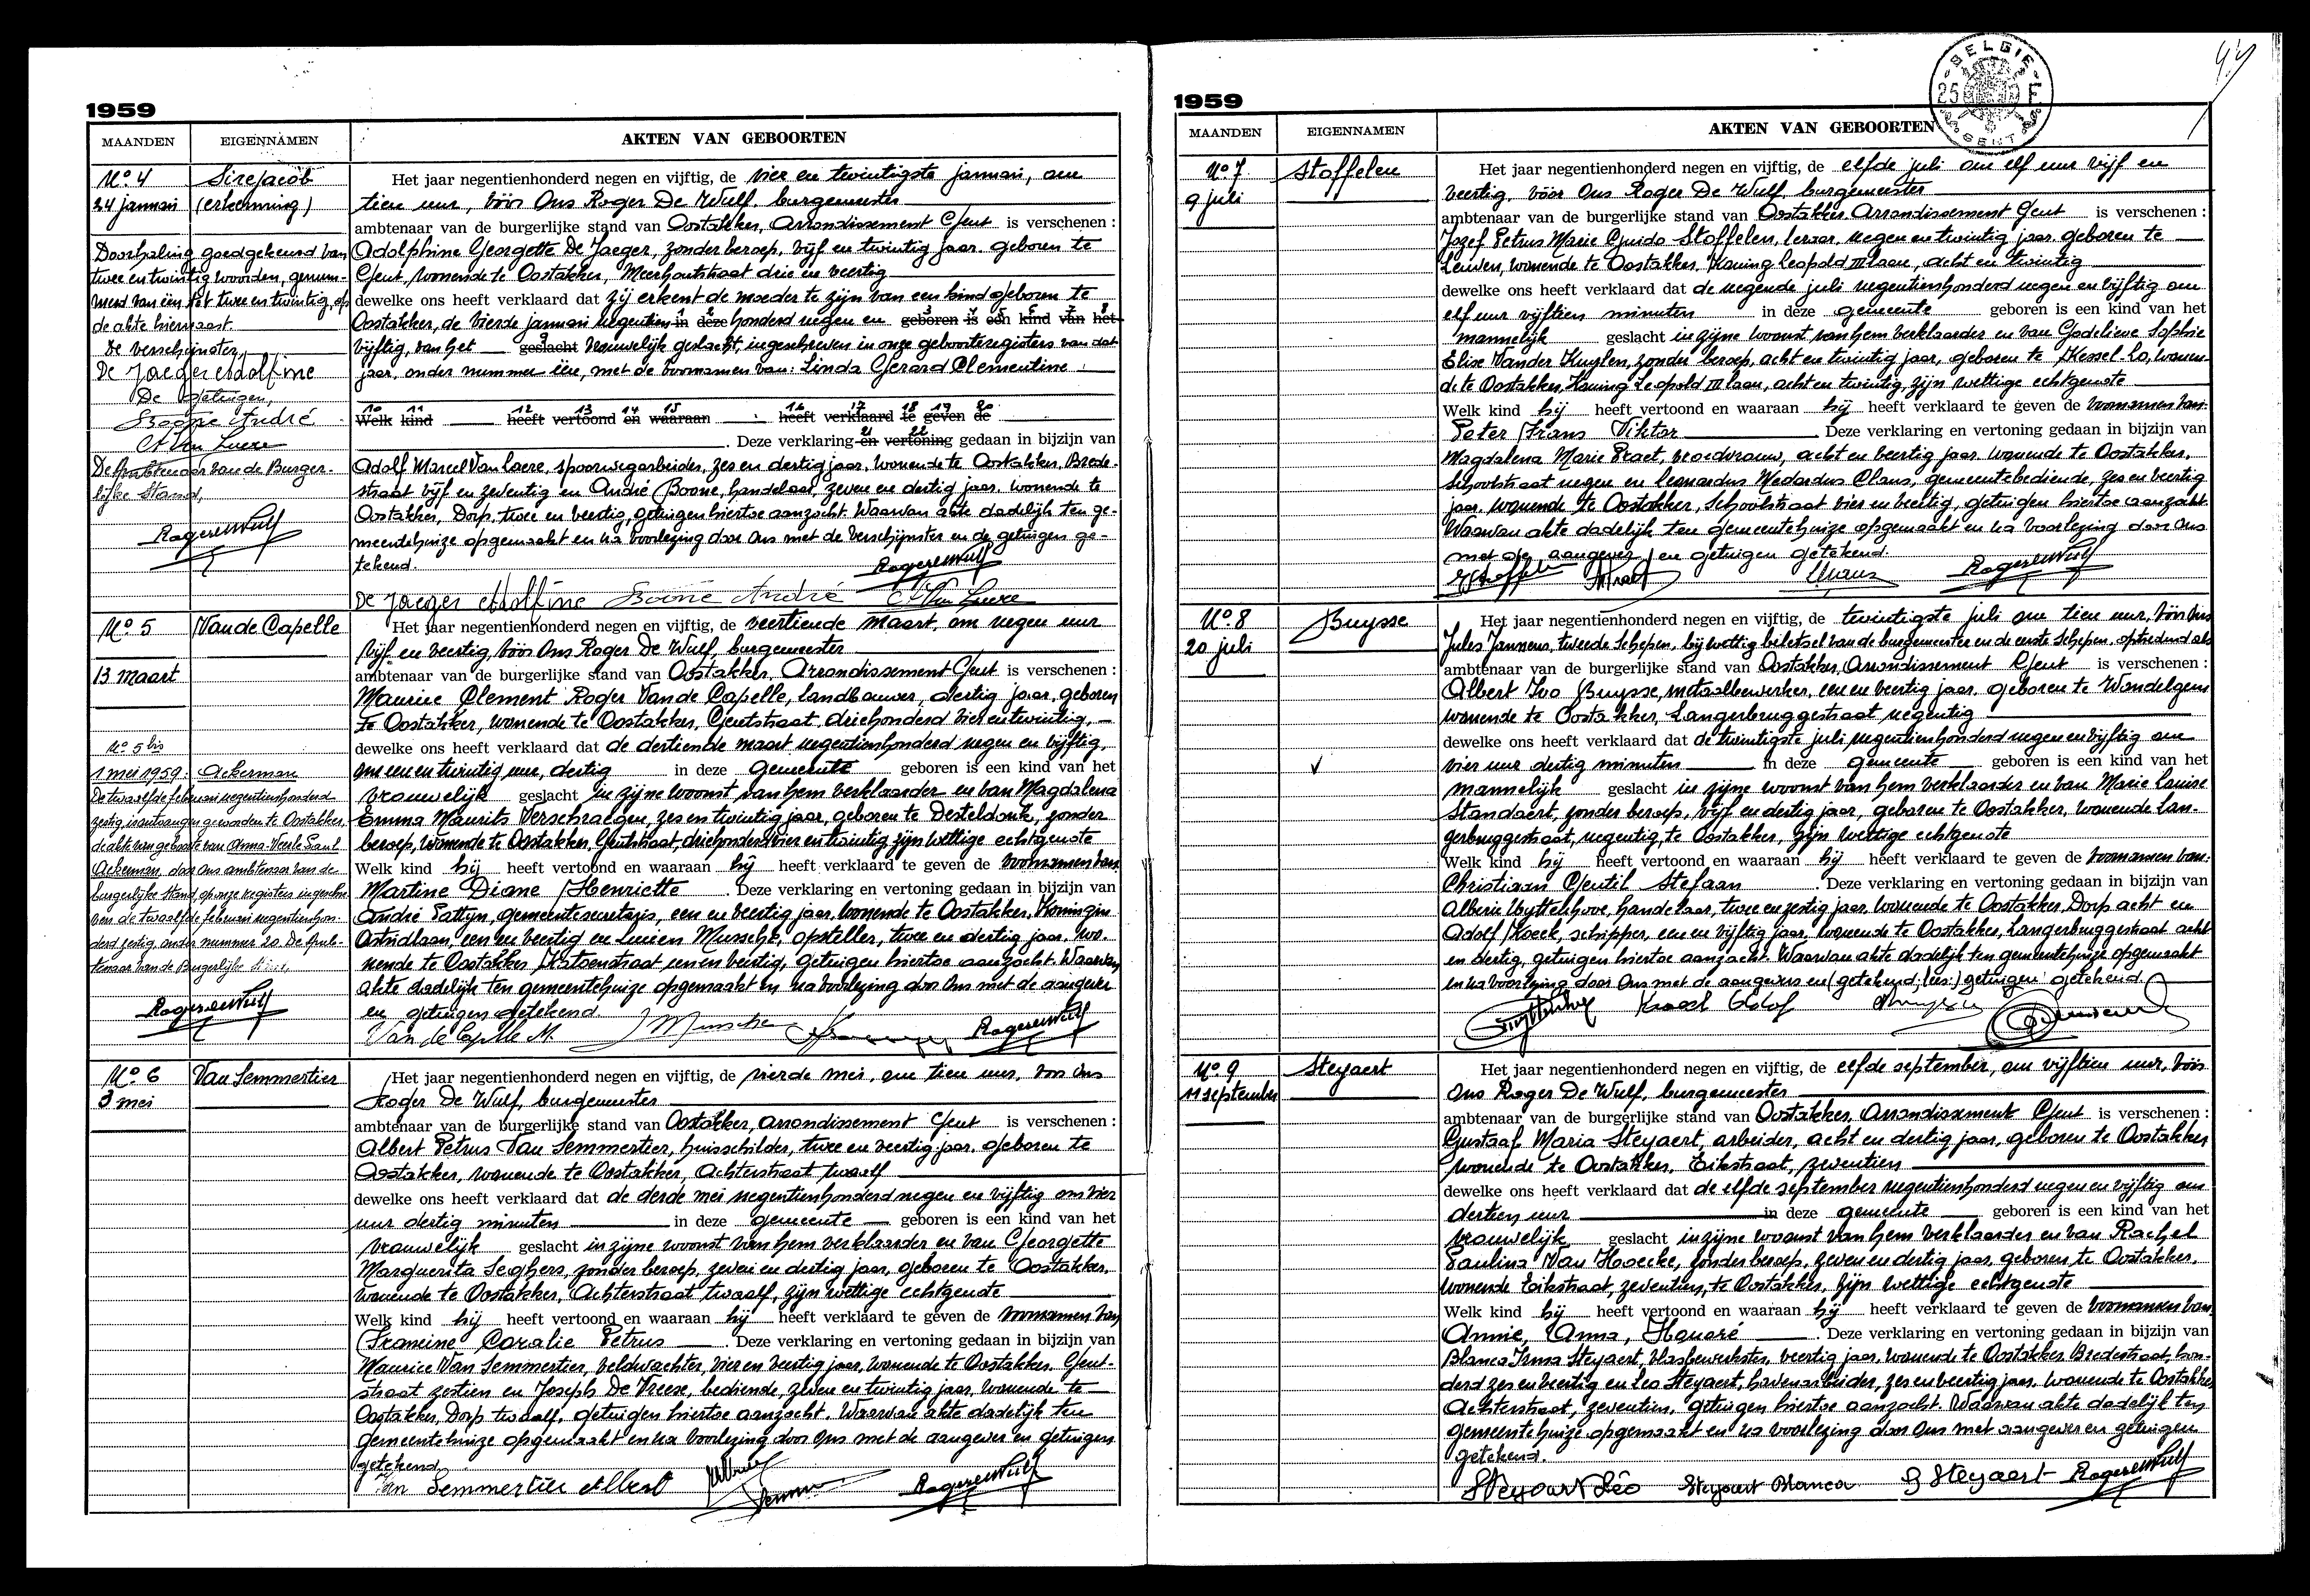 1959
MAANDEN EIGENNAMEN AKTEN VAN GEBOORTEN
No 4 Sirejacob
24 januari (erkenning)
Doorhaling goedgekeurd van
twee en twintig woorden, genum-
merd van één tot twee en twintig, op
de akte hiernaast.
De verschijnster,
De Jaeger Adolfine
De getuigen,
Boone André
A Van Laere
De Ambtenaar van de Burger-
lijke Stand,
Het jaar negentienhonderd negen en vijftig, de vier en twintigste januari, om
tien uur, vóór Ons Roger De Wulf, burgemeester
ambtenaar van de burgerlijke stand van Oostakker, Arrondissement Gent is verschenen :
Adolphine Georgette De Jaeger, zonder beroep, vijf en twintig jaar, geboren te
Gent, wonende te Oostakker, Meerhoutstraat drie en veertig
dewelke ons heeft verklaard dat zij erkent de moeder te zijn van een kind geboren te
Oostakker, de vierde januari negentien in deze honderd negen en geboren is een kind van het
vijftig, van het geslacht vrouwelijk geslacht, ingeschreven in onze geboorteregisters van dat
jaar, onder nummer één, met de voornamen van: Linda Gerard Clementine
10 11 12 13 14 15 16 17 18 19 20
Welk kind heeft vertoond en waaraan heeft verklaard te geven de
Deze verklaring en vertoning gedaan in bijzijn van
Adolf Marcel Van Laere, spoorwegarbeider, zes en dertig jaar, wonende te Oostakker, Brede-
straat vijf en zeventig en André Boone, handelaar, zeven en dertig jaar, wonende te
Oostakker, Dorp, twee en veertig, getuigen hiertoe aanzocht. Waarvan akte dadelijk ten ge-
meentehuize opgemaakt en na voorlezing door Ons met de verschijnster en de getuigen ge-
tekend.
De Jaeger Adolfine Boone André A Van Laere
No 5 Van de Capelle
13 maart
No 5 bis
1 mei 1959. Ackerman
De twaalfde februari negentienhonderd
zestig, is ontvangen geworden te Oostakker,
de akte van geboorte van Anna-Veerle Paul
Ackerman, door Ons ambtenaar van de
burgerlijke stand op onze registers ingeschre-
ven de twaalfde februari negentienhon-
derd zestig, onder nummer 20. De Amb-
tenaar van de Burgerlijke Stand,
Het jaar negentienhonderd negen en vijftig, de veertiende maart, om negen uur
vijf en veertig, vóór Ons Roger De Wulf, burgemeester
ambtenaar van de burgerlijke stand van Oostakker, Arrondissement Gent is verschenen :
Maurice Clement Roger Van de Capelle, landbouwer, dertig jaar, geboren
te Oostakker, wonende te Oostakker, Gentstraat, driehonderd vier en twintig,
dewelke ons heeft verklaard dat de dertiende maart negentienhonderd negen en vijftig,
om een en twintig uur, dertig in deze gemeente geboren is een kind van het
vrouwelijk geslacht in zijne woonst van hem verklaarder en van Magdalena
Emma Maurits Verschraegen, zes en twintig jaar, geboren te Desteldonk, zonder
beroep, wonende te Oostakker, Gentstraat, driehonderd vier en twintig, zijn wettige echtgenote
Welk kind hij heeft vertoond en waaraan hij heeft verklaard te geven de voornamen van
Martine Diane Henriette . Deze verklaring en vertoning gedaan in bijzijn van
André Pattyn, gemeentesecretaris, een en veertig jaar, wonende te Oostakker, Koningin
Astridlaan, een en veertig en Lucien Mussche, opsteller, twee en dertig jaar, wo-
nende te Oostakker, Hatsenstraat een en veertig, getuigen hiertoe aanzocht. Waarvan
akte dadelijk ten gemeentehuize opgemaakt en na voorlezing door Ons met de aangever
en getuigen getekend.
Van de Capelle M. J Mussche
No 6 Van Semmertier
3 mei
Het jaar negentienhonderd negen en vijftig, de vierde mei, om tien uur, vóór Ons
Roger De Wulf, burgemeester
ambtenaar van de burgerlijke stand van Oostakker, arrondissement Gent is verschenen :
Albert Petrus Van Semmertier, huisschilder, twee en veertig jaar, geboren te
Oostakker, wonende te Oostakker, Achterstraat twaalf
dewelke ons heeft verklaard dat de derde mei negentienhonderd negen en vijftig om vier
uur dertig minuten in deze gemeente geboren is een kind van het
vrouwelijk geslacht in zijne woonst van hem verklaarder en van Georgette
Marguerita Seghers, zonder beroep, zeven en dertig jaar, geboren te Oostakker,
wonende te Oostakker, Achterstraat twaalf, zijn wettige echtgenote
Welk kind hij heeft vertoond en waaraan hij heeft verklaard te geven de voornamen van
Francine Coralie Petrus . Deze verklaring en vertoning gedaan in bijzijn van
Maurice Van Semmertier, veldwachter, vier en veertig jaar, wonende te Oostakker, Gent-
straat zestien en Joseph De Vreese, bediende, zeven en twintig jaar, wonende te
Oostakker, Dorp twaalf, getuigen hiertoe aanzocht. Waarvan akte dadelijk ten
gemeentehuize opgemaakt en na voorlezing door Ons met de aangever en getuigen
getekend.
Van Semmertier Albert
1959
BELGIE 25 F GENT
MAANDEN EIGENNAMEN AKTEN VAN GEBOORTEN
No 7 Stoffelen
9 juli
Het jaar negentienhonderd negen en vijftig, de elfde juli om elf uur vijf en
veertig, vóór Ons Roger De Wulf, burgemeester
ambtenaar van de burgerlijke stand van Oostakker, Arrondissement Gent is verschenen :
Jozef Petrus Marie Guido Stoffelen, leraar, negen en twintig jaar, geboren te
Leuven, wonende te Oostakker, Koning Leopold III laan, acht en twintig
dewelke ons heeft verklaard dat de negende juli negentienhonderd negen en vijftig om
elf uur vijftien minuten in deze gemeente geboren is een kind van het
mannelijk geslacht in zijne woonst van hem verklaarder en van Godelieve Sophie
Elise Vander Kuylen, zonder beroep, acht en twintig jaar, geboren te Kessel-Lo, wonen-
de te Oostakker, Koning Leopold III laan, acht en twintig, zijn wettige echtgenote
Welk kind hij heeft vertoond en waaraan hij heeft verklaard te geven de voornamen van:
Peter Frans Viktor . Deze verklaring en vertoning gedaan in bijzijn van
Magdalena Marie Praet, vroedvrouw, acht en veertig jaar, wonende te Oostakker,
Schoolstraat negen en Leonardus Medardus Claus, gemeentebediende, zes en veertig
jaar, wonende te Oostakker, Schoolstraat vier en veertig, getuigen hiertoe aanzocht.
Waarvan akte dadelijk ten gemeentehuize opgemaakt en na voorlezing door Ons
met de aangever en getuigen getekend.
No 8 Buysse
20 juli
Het jaar negentienhonderd negen en vijftig, de twintigste juli om tien uur, vóór Ons
Jules Janneus, tweede schepen, bij wettig beletsel van de burgemeester en de eerste schepen, optredend als
ambtenaar van de burgerlijke stand van Oostakker, Arrondissement Gent is verschenen :
Albert Ivo Buysse, metaalbewerker, een en veertig jaar, geboren te Wondelgem
wonende te Oostakker, Langerbruggestraat negentig
dewelke ons heeft verklaard dat de twintigste juli negentienhonderd negen en vijftig om
vier uur dertig minuten in deze gemeente geboren is een kind van het
mannelijk geslacht in zijne woonst van hem verklaarder en van Marie Louise
Standaert, zonder beroep, vijf en dertig jaar, geboren te Oostakker, wonende Lan-
gerbruggestraat, negentig, te Oostakker, zijn wettige echtgenote
Welk kind hij heeft vertoond en waaraan hij heeft verklaard te geven de voornamen van:
Christiaan Gentil Stefaan . Deze verklaring en vertoning gedaan in bijzijn van
Alberic Uyttenhove, handelaar, twee en zestig jaar, wonende te Oostakker, Dorp acht en
Adolf Hoeck, schipper, een en vijftig jaar, wonende te Oostakker, Langerbruggestraat acht
en dertig, getuigen hiertoe aanzocht. Waarvan akte dadelijk ten gemeentehuize opgemaakt
en na voorlezing door Ons met de aangever en (getekend; lees:) getuigen getekend.
No 9 Steyaert
11 september
Het jaar negentienhonderd negen en vijftig, de elfde september, om vijftien uur, vóór
Ons Roger De Wulf, burgemeester
ambtenaar van de burgerlijke stand van Oostakker, Arrondissement Gent is verschenen :
Gustaaf Maria Steyaert, arbeider, acht en dertig jaar, geboren te Oostakker
wonende te Oostakker, Eikstraat, zeventien
dewelke ons heeft verklaard dat de elfde september negentienhonderd negen en vijftig om
dertien uur in deze gemeente geboren is een kind van het
vrouwelijk geslacht in zijne woonst van hem verklaarder en van Rachel
Paulina Van Hoecke, zonder beroep, zeven en dertig jaar, geboren te Oostakker,
wonende Eikstraat, zeventien, te Oostakker, zijn wettige echtgenote
Welk kind hij heeft vertoond en waaraan hij heeft verklaard te geven de voornamen van
Annie, Anna, Honoré . Deze verklaring en vertoning gedaan in bijzijn van
Blanca Irma Steyaert, vlasbewerkster, veertig jaar, wonende te Oostakker, Bredestraat, hon-
derd zes en veertig en Leo Steyaert, havenarbeider, zes en veertig jaar, wonende te Oostakker
Achterstraat, zeventien, getuigen hiertoe aanzocht. Waarvan akte dadelijk ten
gemeentehuize opgemaakt en na voorlezing door Ons met aangever en getuigen
getekend.
Steyaert Léo Steyaert Blanca G Steyaert